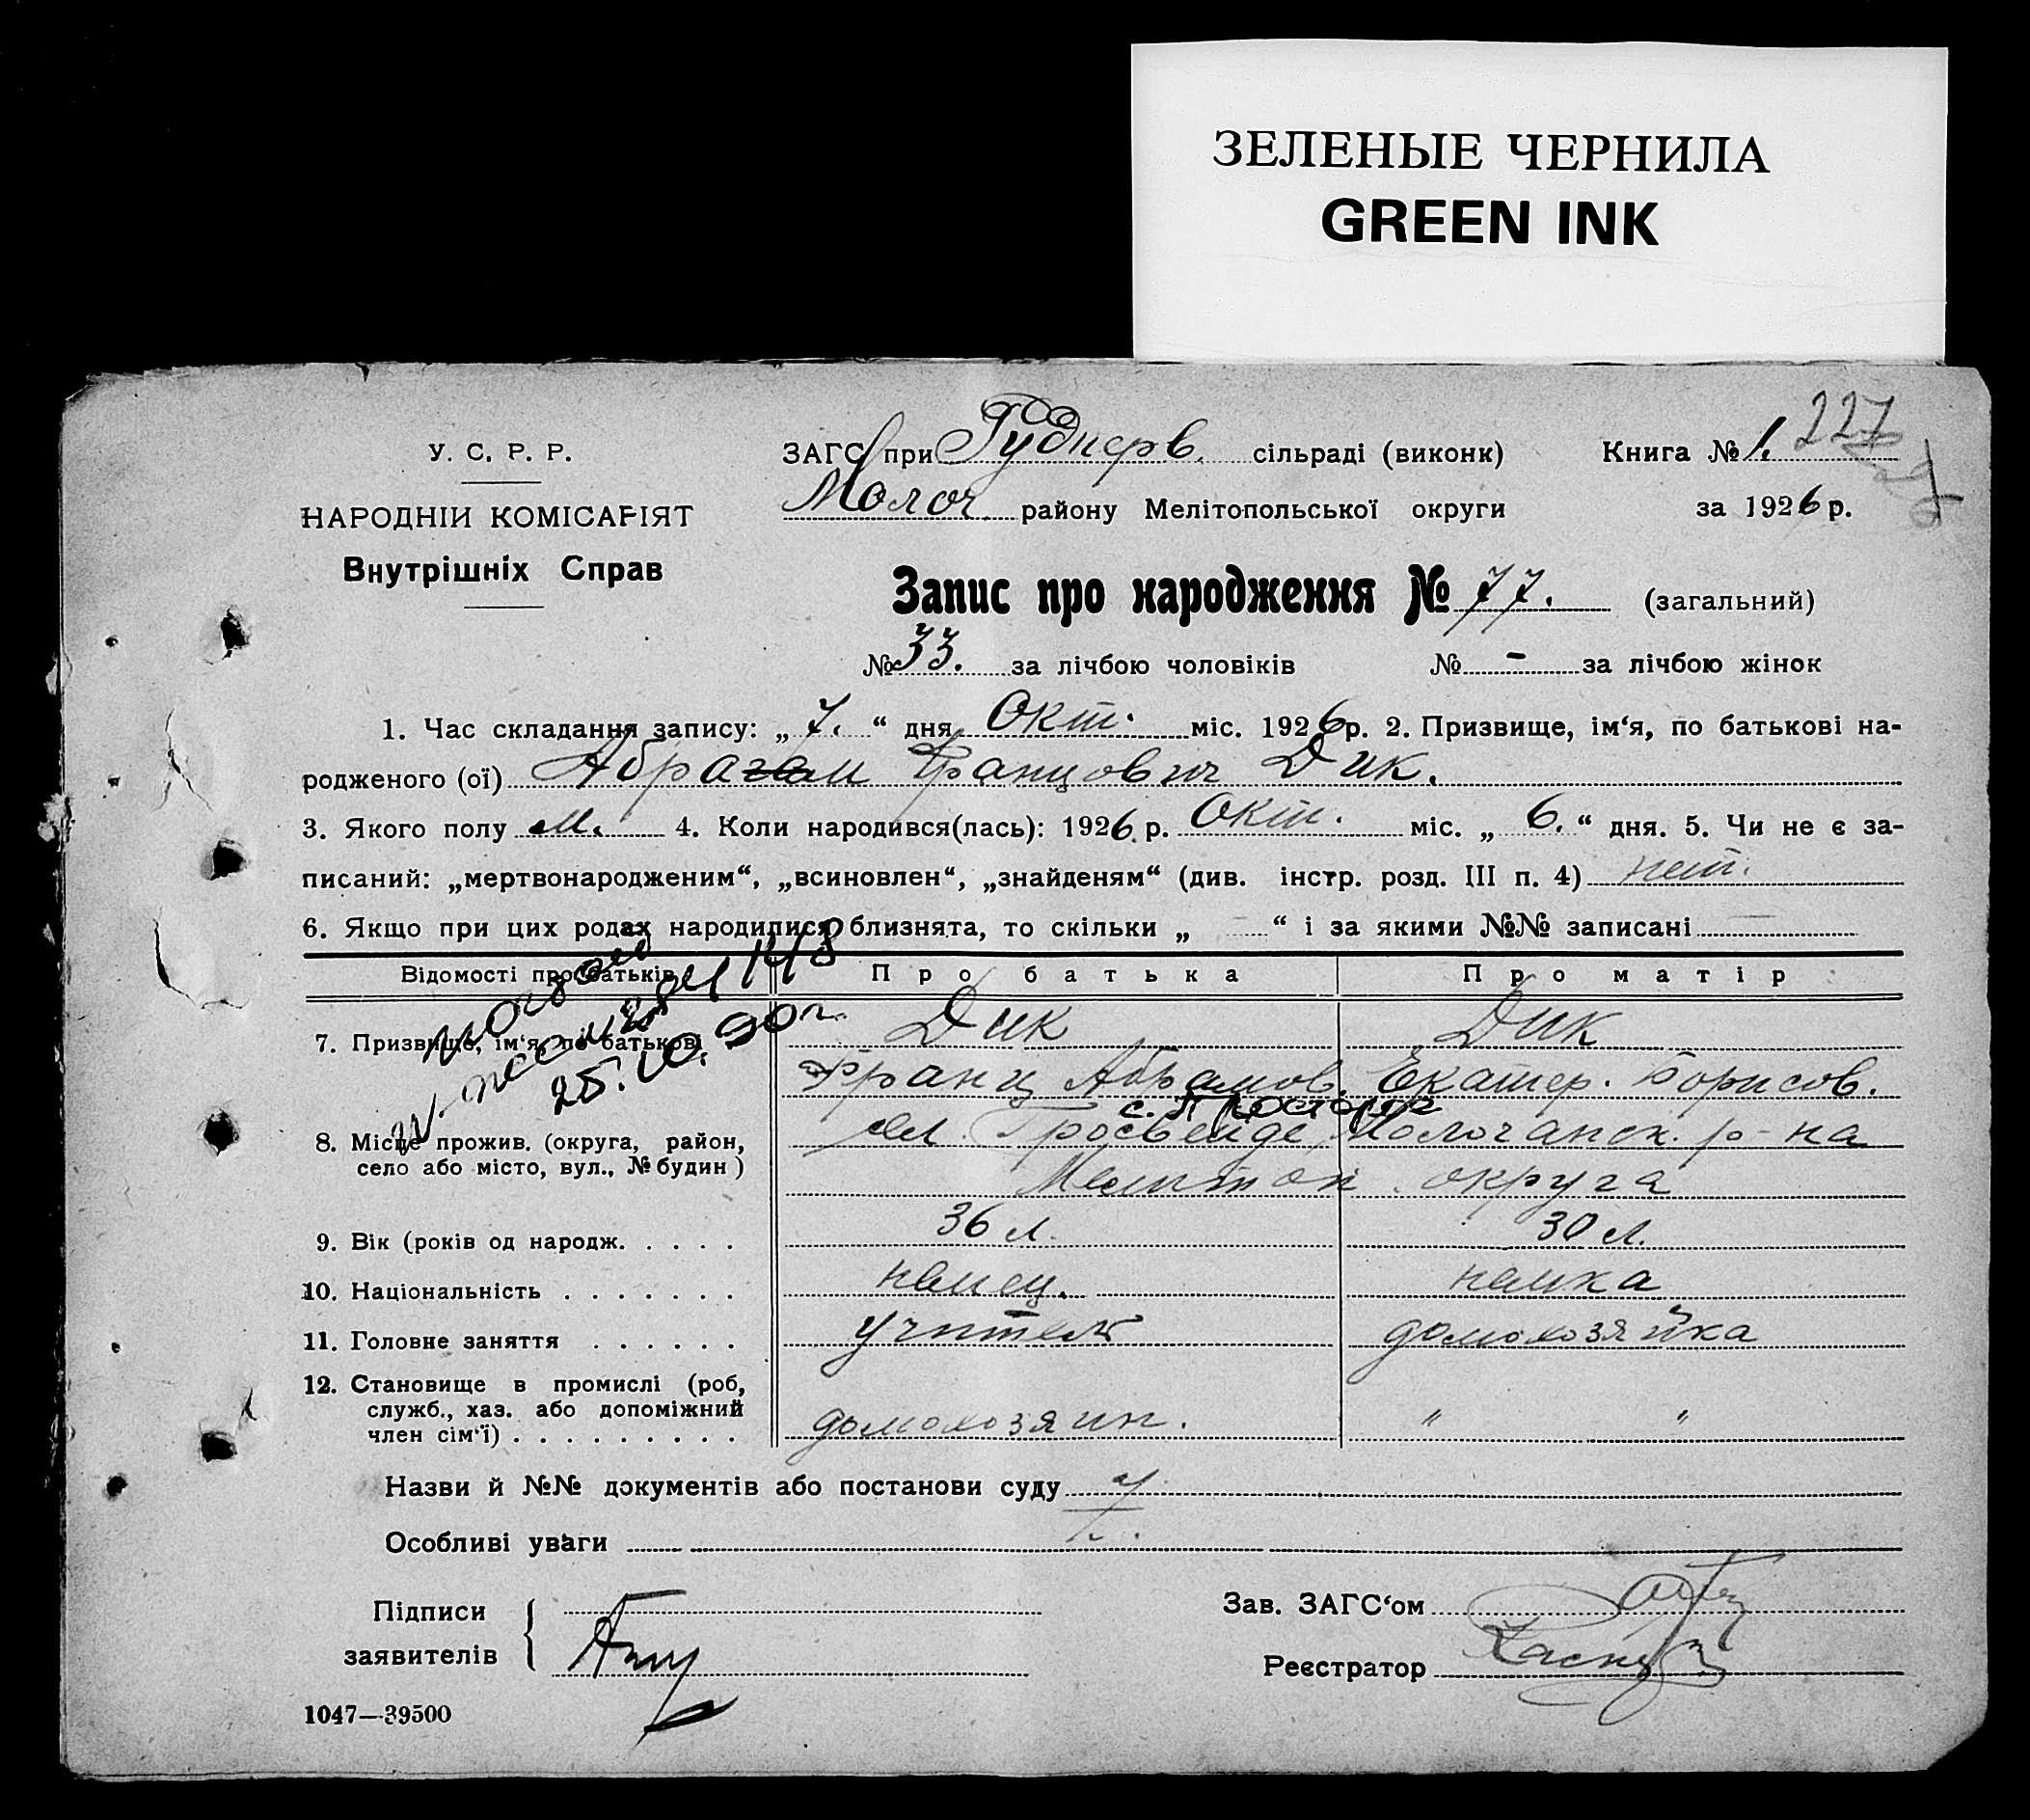 ЗЕЛЕНЫЕ ЧЕРНИЛА
GREEN INK
227
У. С. Р. Р.
НАРОДНІЙ КОМІСАРІЯТ
Внутрішніх Справ
ЗАГС при Гуднерв. сільраді (виконк) Книга № 1.
Молоч. району Мелітопольської округи за 1926 р.
Запис про народження № 77. (загальний)
№ 33. за лічбою чоловіків № - за лічбою жінок
1. Час складання запису: „ 7. “ дня Окт. міс. 1926 р. 2. Призвище, ім‘я, по батькові на-
родженого (ої) Абрагам Францович Дик.
3. Якого полу м. 4. Коли народився(лась): 1926 р. Окт. міс. „ 6. “ дня. 5. Чи не є за-
писаний: „мертвонародженим“, „всиновлен“, „знайденям“ (див. інстр. розд. III п. 4) нет.
6. Якщо при цих родах народилися близнята, то скільки „ “ і за якими №№ записані
Відомості про батьків Про батька Про матір
7. Призвище, ім‘я, по батькові Дик Дик
Франц Абрамов. Екатер. Борисов.
25.10.90 г.
8. Місце прожив. (округа, район, Гросвейде Молочанск. р-на
село або місто, вул., № будин)
Мелитоп. округа
9. Вік (років од народж. . . . . 36 л. 30 л.
10. Національність . . . . . . . немец. немка
11. Головне заняття . . . . . . учитель домохозяйка
12. Становище в промислі (роб,
служб., хаз. або допоміжний
член сім‘ї) . . . . . . . . . домохозяин. " "
Назви й №№ документів або постанови суду
Особливі уваги
Підписи
заявителів
Зав. ЗАГС‘ом
Реєстратор
1047—39500